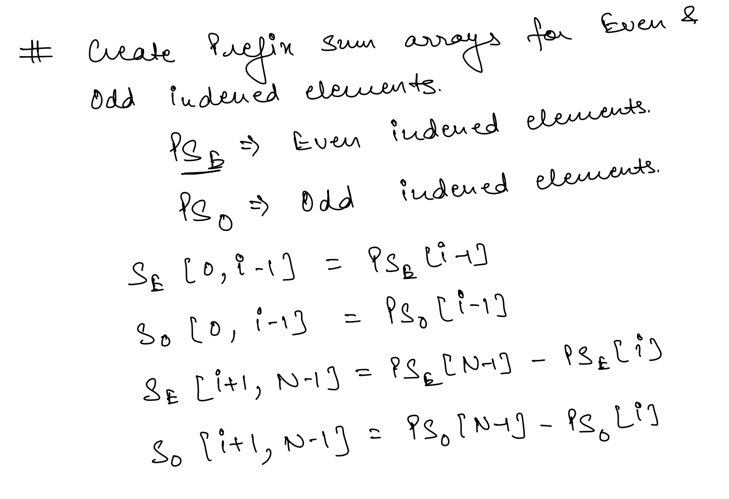 # Create Prefix sum arrays for Even &
Odd indexed elements.
PS_E ⇒ Even indexed elements.
PS_O ⇒ Odd indexed elements.
S_E [0, i-1] = PS_E [i-1]
S_O [0, i-1] = PS_O [i-1]
S_E [i+1, N-1] = PS_E [N-1] - PS_E [i]
S_O [i+1, N-1] = PS_O [N-1] - PS_O [i]